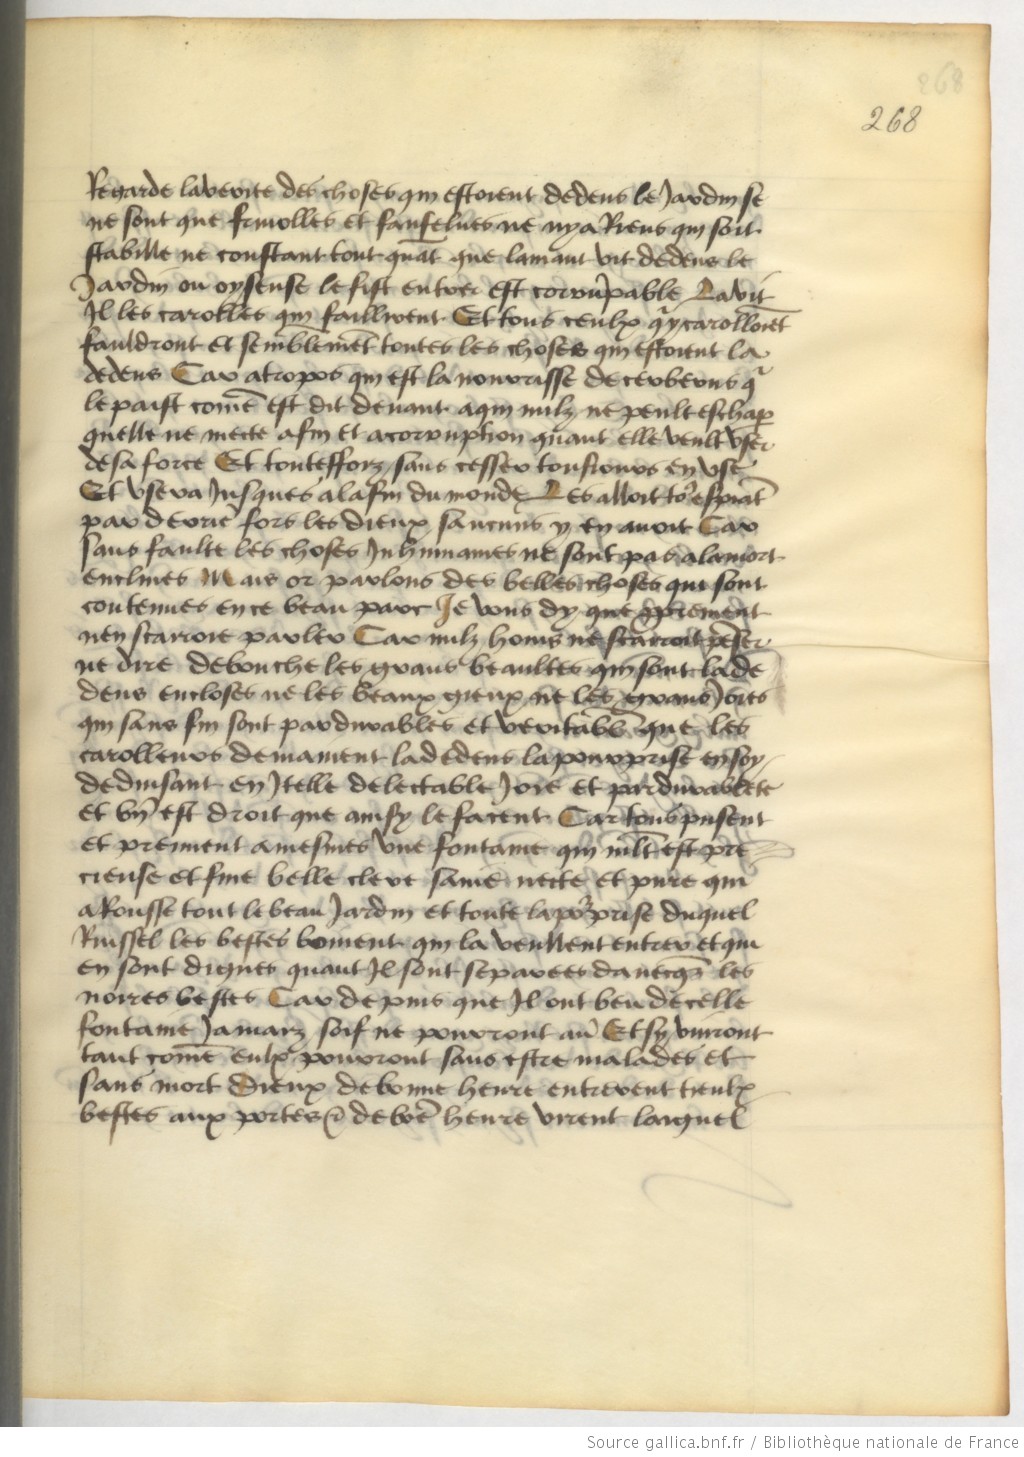 268
Regarde la verite des choses qui estoient dedens le Jardin se
ne sont que frivolles et fanfelues ne ny a Riens qui soit
stabille ne constant tout quāt que lamant vit dedens le
Jardin ou oyseuse le fist entrer est corrūpable La vit
Il les carolles qui faillirent Et tous ceulx qͥ y carolloiēt
fauldront et semblemēt toutes les choses qui estoient la
dedens Car atropos qui est la nourrisse de cerberus qͥ
le paist cōme est dit devant a qui nulz ne peult eschaꝑ
quelle ne mecte a fin et a corrupcion quant elle veult vser
de sa force Et touteffoiz sans cesser tousiours en vse
Et vsera Jusques a la fin du monde Les alloit toꝰ espiāt
par derrie fors les dieux saucuns y en avoit Car
sans faulte les choses Inhumaines ne sont pas a la mort
enclines Mais or parlons des belles choses qui sont
contenues en ce beau parc Je vous dy que ꝓprement
nen scaroie parler Car nulz homs ne scarroit pēser
ne dire de bouche les grans beaultes qui sont la de
dens encloses ne les beaux gieux ne les grans Joies
qui sans fin sont pardurables et veritabł que les
carolleurs demainent la dedens la pourprise en soy
deduisant en Itelle delectable Joie et pardurablete
et bn̄ est droit que ainsy le facent Car tous puisent
et preinnent a mesmes vne fontaine qui mlt est pre
cieuse et fine belle clere saine necte et pure qui
aRousse tout le beau Jardin et toute la poꝰprise duquel
Ruissel les bestes boivent qui la veullent entrer et qui
en sont dignes quant Il sont separees davecqꝫ les
noires bestes Car depuis que Il ont beu de celle
fontaine Jamaiz soif ne pourront au̅ Et sy vivront
tant cōme eulx pourront sans estre malades et
sans mort Dieux de bonne heure entrerent tieulx
bestes aux portes de boē heure virent laignel
Source gallica.bnf.fr / Bibliothèque nationale de France